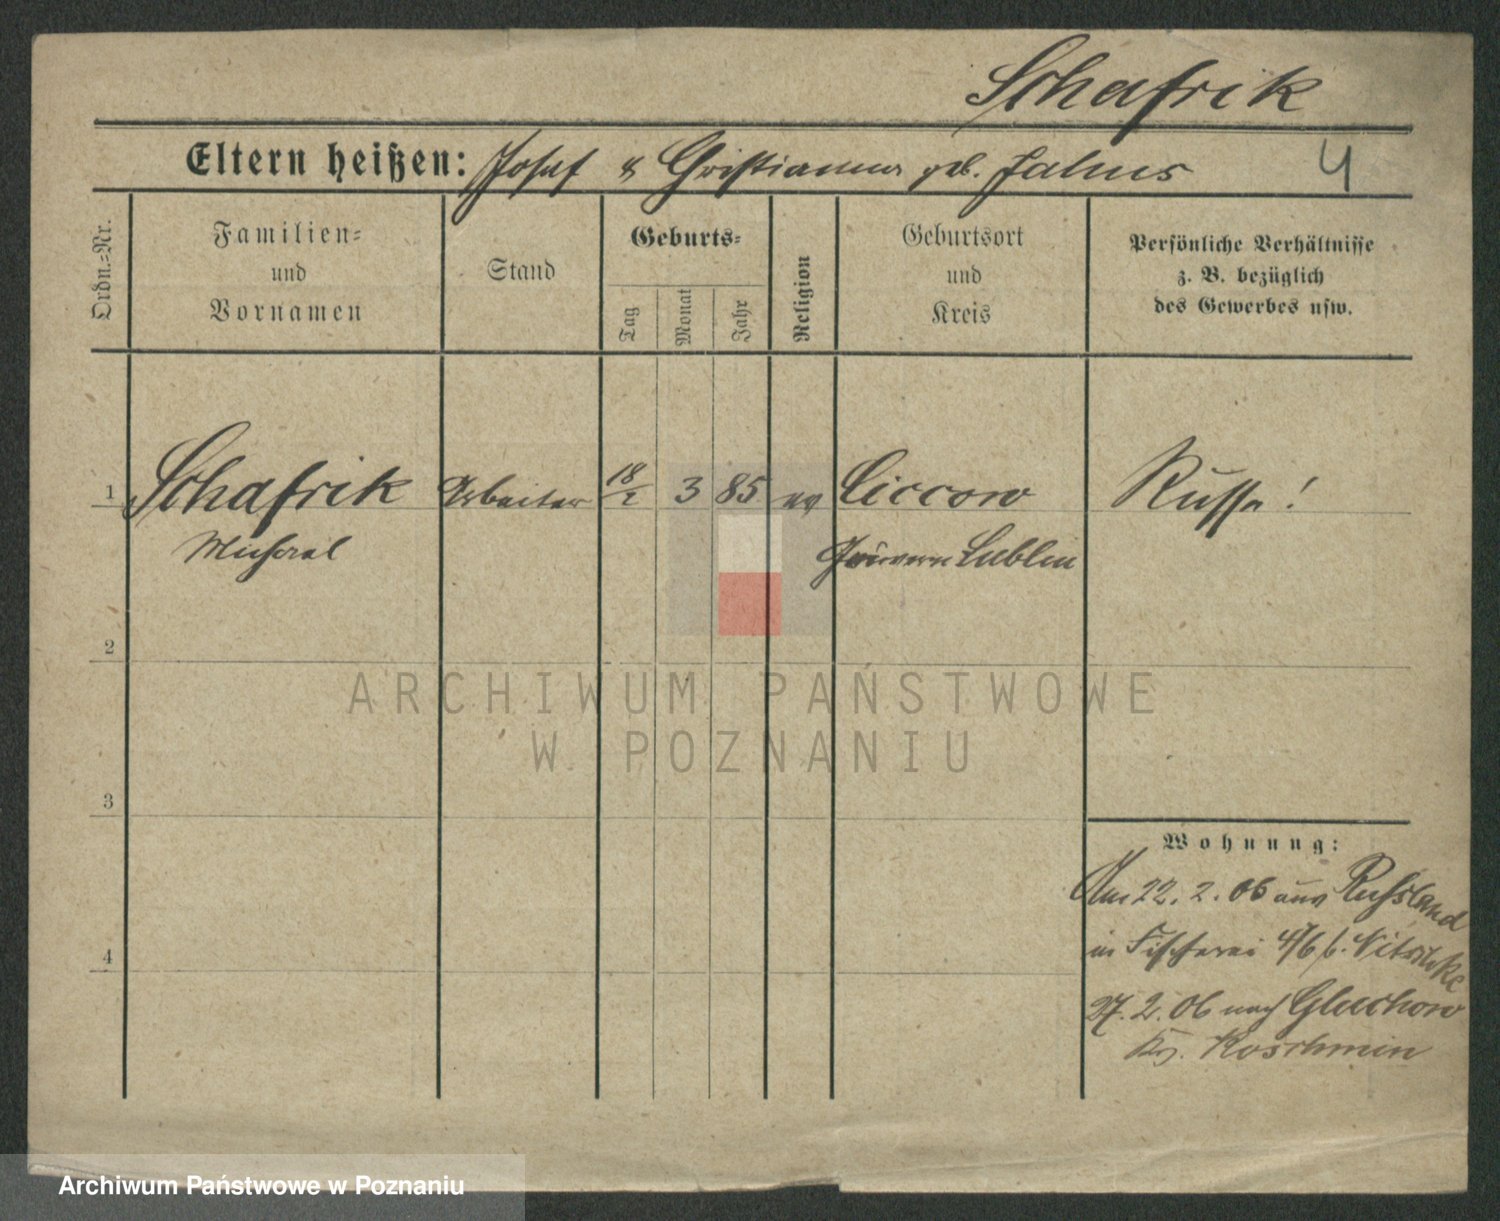 Schafrik
Eltern heißen: Josef & Christianna geb. Jahns
4
Ordn.=Nr.
Familien=
und
Vornamen
Stand
Geburts=
Tag
Monat
Jahr
Religion
Geburtsort
und
Kreis
Persönliche Verhältnisse
z. B. bezüglich
des Gewerbes usw.
1 Schafrik Arbeiter 18 3 85 ev Ciccow Russe!
Michael Lublin
2
ARCHIWUM PAŃSTWOWE
W POZNANIU
3
Wohnung:
Am 22. 2. 06 aus Rußland
in Fischerei 4/6 b.
4
27. 2. 06 nach Gluchow
Krs. Koschmin
Archiwum Państwowe w Poznaniu